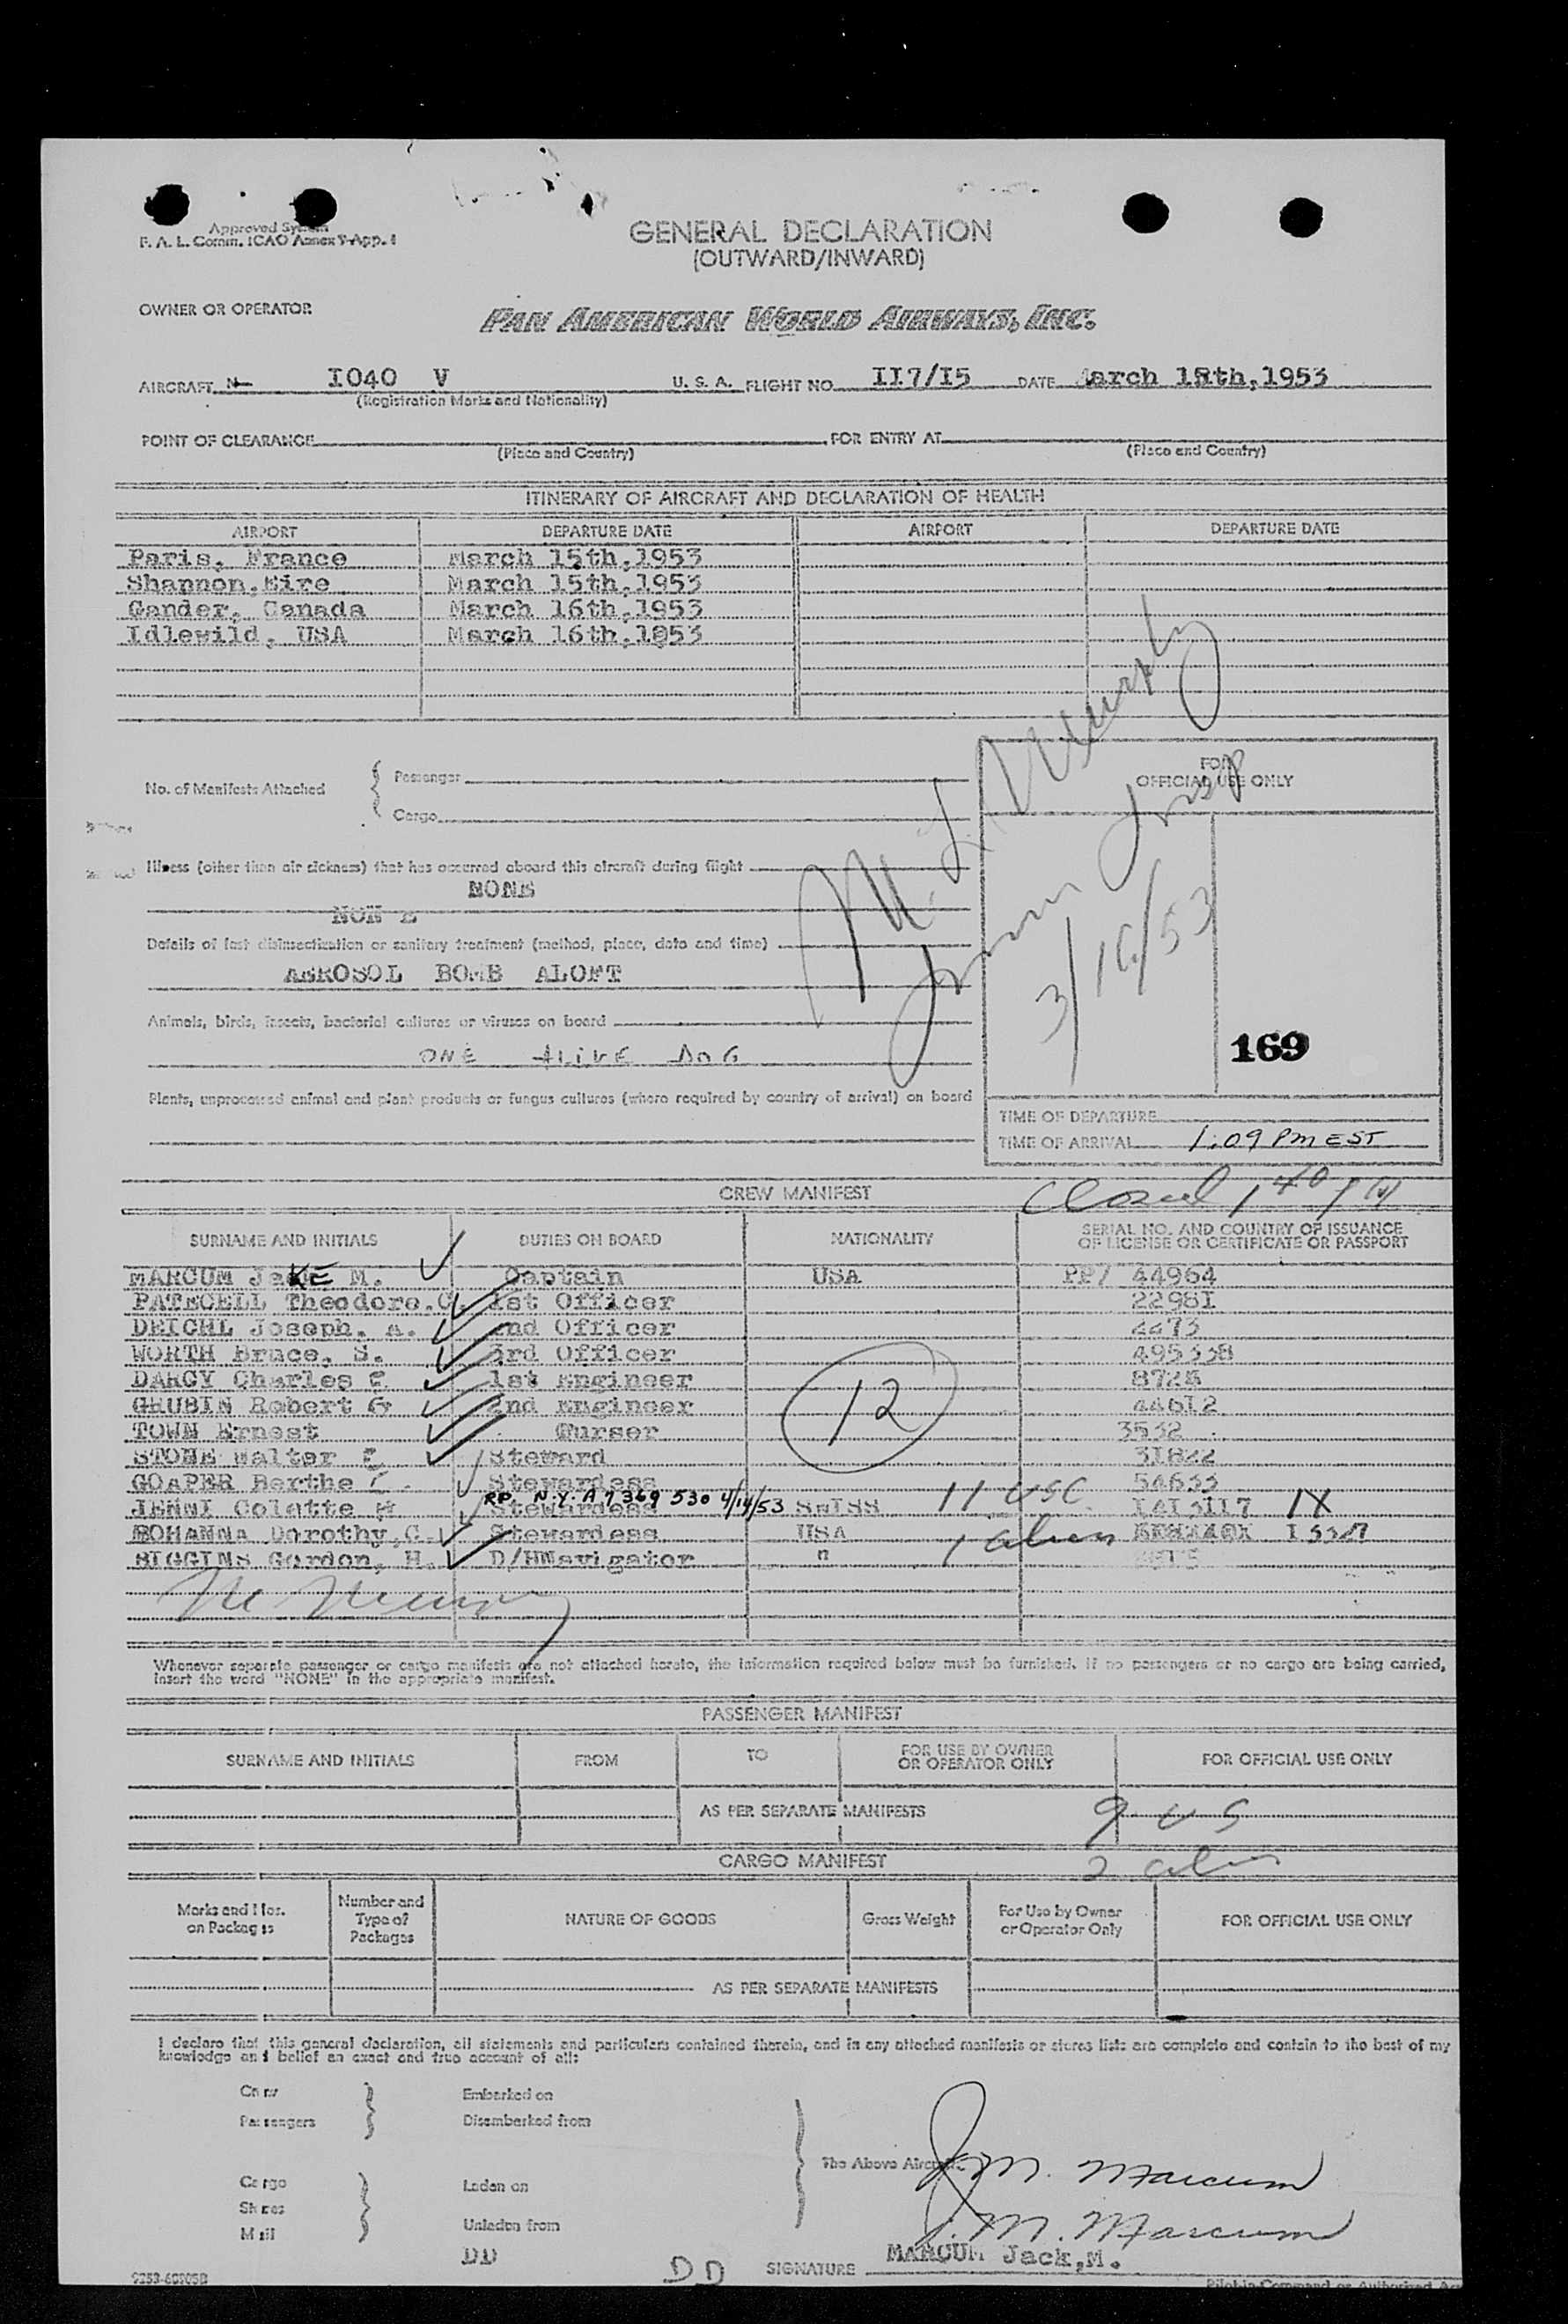 Approved System
F. A. L. Comm. ICAO Annex 9-App. 1
GENERAL DECLARATION
(OUTWARD/INWARD)
OWNER OR OPERATOR
PAN AMERICAN WORLD AIRWAYS, INC.
AIRCRAFT N- I040 V U. S. A. FLIGHT NO. II7/I5 DATE March 15th,1953
(Registration Marks and Nationality)
POINT OF CLEARANCE FOR ENTRY AT
(Place and Country) (Place and Country)
ITINERARY OF AIRCRAFT AND DECLARATION OF HEALTH
AIRPORT DEPARTURE DATE AIRPORT DEPARTURE DATE
Paris, France March 15th,1953
Shannon,Eire March 15th,1953
Gander, Canada March 16th,1953
Idlewild, USA March 16th,1953
No. of Manifests Attached
Passenger
Cargo
FOR
OFFICIAL USE ONLY
M. L. Murphy
3/16/53
169
Illness (other than air sickness) that has occurred aboard this aircraft during flight
NONE
NON E
Details of last disinsectization or sanitary treatment (method, place, date and time)
AEROSOL BOMB ALOFT
Animals, birds, insects, bacterial cultures or viruses on board
ONE ALIVE DOG
Plants, unprocessed animal and plant products or fungus cultures (where required by country of arrival) on board
TIME OF DEPARTURE
TIME OF ARRIVAL 1:09 PM EST
CREW MANIFEST
Closed 1 40 PM
SURNAME AND INITIALS DUTIES ON BOARD NATIONALITY SERIAL NO. AND COUNTRY OF ISSUANCE
OF LICENSE OR CERTIFICATE OR PASSPORT
MARCUM JaKE M. Captain USA PP/ 44964
PATECELL Theodore.C. 1st Officer 2298I
DEICHL Joseph. A. 2nd Officer 4473
WORTH Bruce. S. 3rd Officer 495338
DARCY Charles E 1st Engineer
GRUBIN Robert G 2nd Engineer 446I2
TOWN Ernest Purser 3532
STONE Walter E Steward 3I822
GOAPER Berthe Stewardess 54633
RP N.Y. A 7 369 530 4/14/53 11 USC
JENNI Colette H Stewardess SWISS IAI3117 1X
BOHANNA Dorothy,C. Stewardess USA 1 alien I5547
BIGGINS Gordon, H. D/HNavigator "
12
M Murphy
Whenever separate passenger or cargo manifests are not attached hereto, the information required below must be furnished. If no passengers or no cargo are being carried,
insert the word "NONE" in the appropriate manifest.
PASSENGER MANIFEST
SURNAME AND INITIALS FROM TO FOR USE BY OWNER
OR OPERATOR ONLY FOR OFFICIAL USE ONLY
AS PER SEPARATE MANIFESTS 9 US
CARGO MANIFEST 2 alien
Marks and Nos.
on Packages Number and
Type of
Packages NATURE OF GOODS Gross Weight For Use by Owner
or Operator Only FOR OFFICIAL USE ONLY
AS PER SEPARATE MANIFESTS
I declare that this general declaration, all statements and particulars contained therein, and in any attached manifests or stores lists are complete and contain to the best of my
knowledge and belief an exact and true account of all:
Crew Embarked on
Passengers Disembarked from
The Above Aircraft.
Cargo Laden on
Stores
Mail Unladen from
J. M. Marcum
J. M. Marcum
DD
DD SIGNATURE MARCUM Jack,M.
9253-60905B
Pilot-in-Command or Authorized